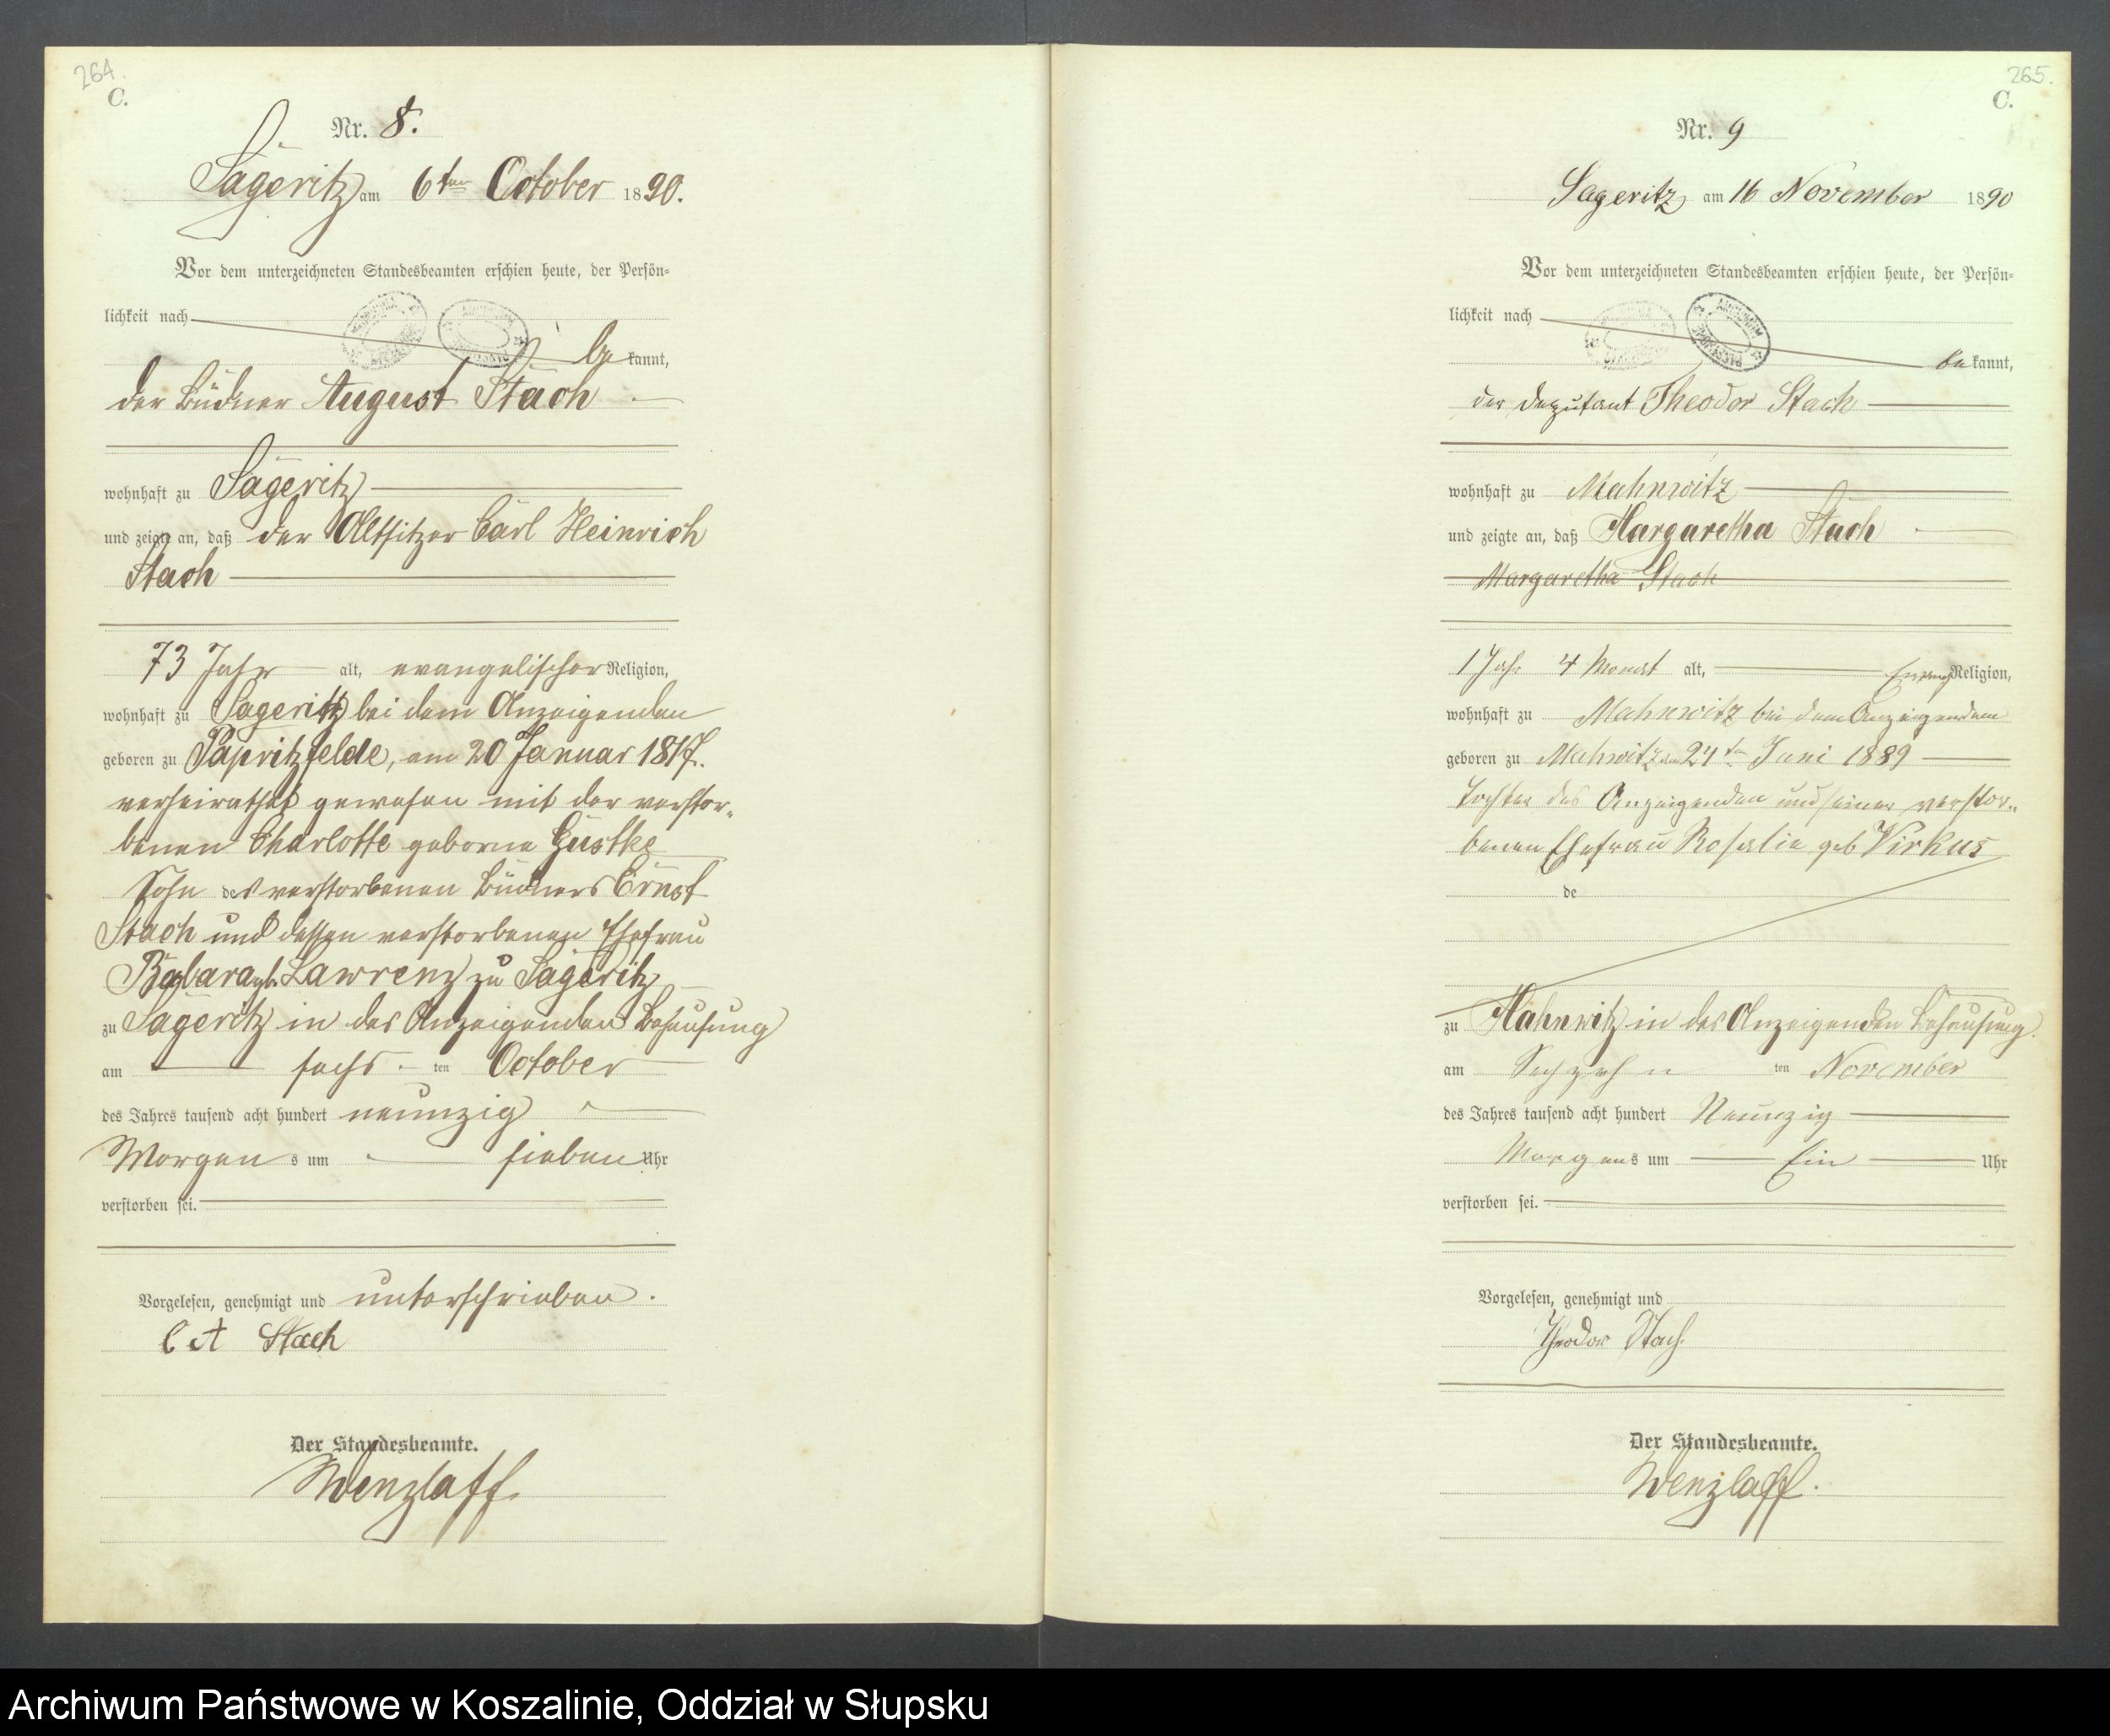 264.
C.
Nr. 8.
Sageritz am 6ten October 1890.
Vor dem unterzeichneten Standesbeamten erschien heute, der Persön-
lichkeit nach
be kannt,
der Büdner August Stach
wohnhaft zu Sageritz
und zeigte an, daß der Altsitzer Carl Heinrich
Stach
73 Jahr alt, evangelischer Religion,
wohnhaft zu Sageritz bei dem Anzeigenden
geboren zu Papritzfelde, am 20 Januar 1817.
verheirathet gewesen mit der verstor-
benen Charlotte geborne Güstke
Sohn des verstorbenen Büdners Ernst
Stach und dessen verstorbenen Ehefrau
Barbara geb. Lawrenz zu Sageritz
zu Sageritz in des Anzeigenden Behausung
am sechs ten October
des Jahres tausend acht hundert neunzig
Morgen s um sieben Uhr
verstorben sei.
Vorgelesen, genehmigt und unterschrieben.
C A Stach
Der Standesbeamte.
Wenzlaff.
265.
C.
Nr. 9
Sageritz am 16 November 1890
Vor dem unterzeichneten Standesbeamten erschien heute, der Persön-
lichkeit nach
be kannt,
der Deputant Theodor Stach
wohnhaft zu Mahnwitz
und zeigte an, daß Margaretha Stach
Margaretha Stach
1 Jahr 4 Monat alt, Evang Religion,
wohnhaft zu Mahnwitz bei dem Anzeigendem
geboren zu Mahwitz am 24ten Juni 1889
Tochter des Anzeigenden und seiner verstor-
benen Ehefrau Rosalie geb Virkus
de
zu Mahnwitz in des Anzeigenden Behausung.
am Sechzehn ten November
des Jahres tausend acht hundert Neunzig
Morgens um Ein Uhr
verstorben sei.
Vorgelesen, genehmigt und
Theodor Stach.
Der Standesbeamte.
Wenzlaff.
Archiwum Państwowe w Koszalinie, Oddział w Słupsku